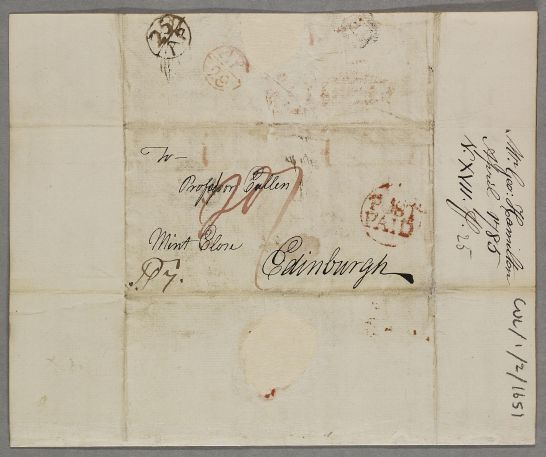 25/AP
To —
Professor Cullen
Mint Close
Edinburgh
PAID
Mr Geo: Hamilton
April 1785
N. XVII. ff. 25
CUL/1/2/1651